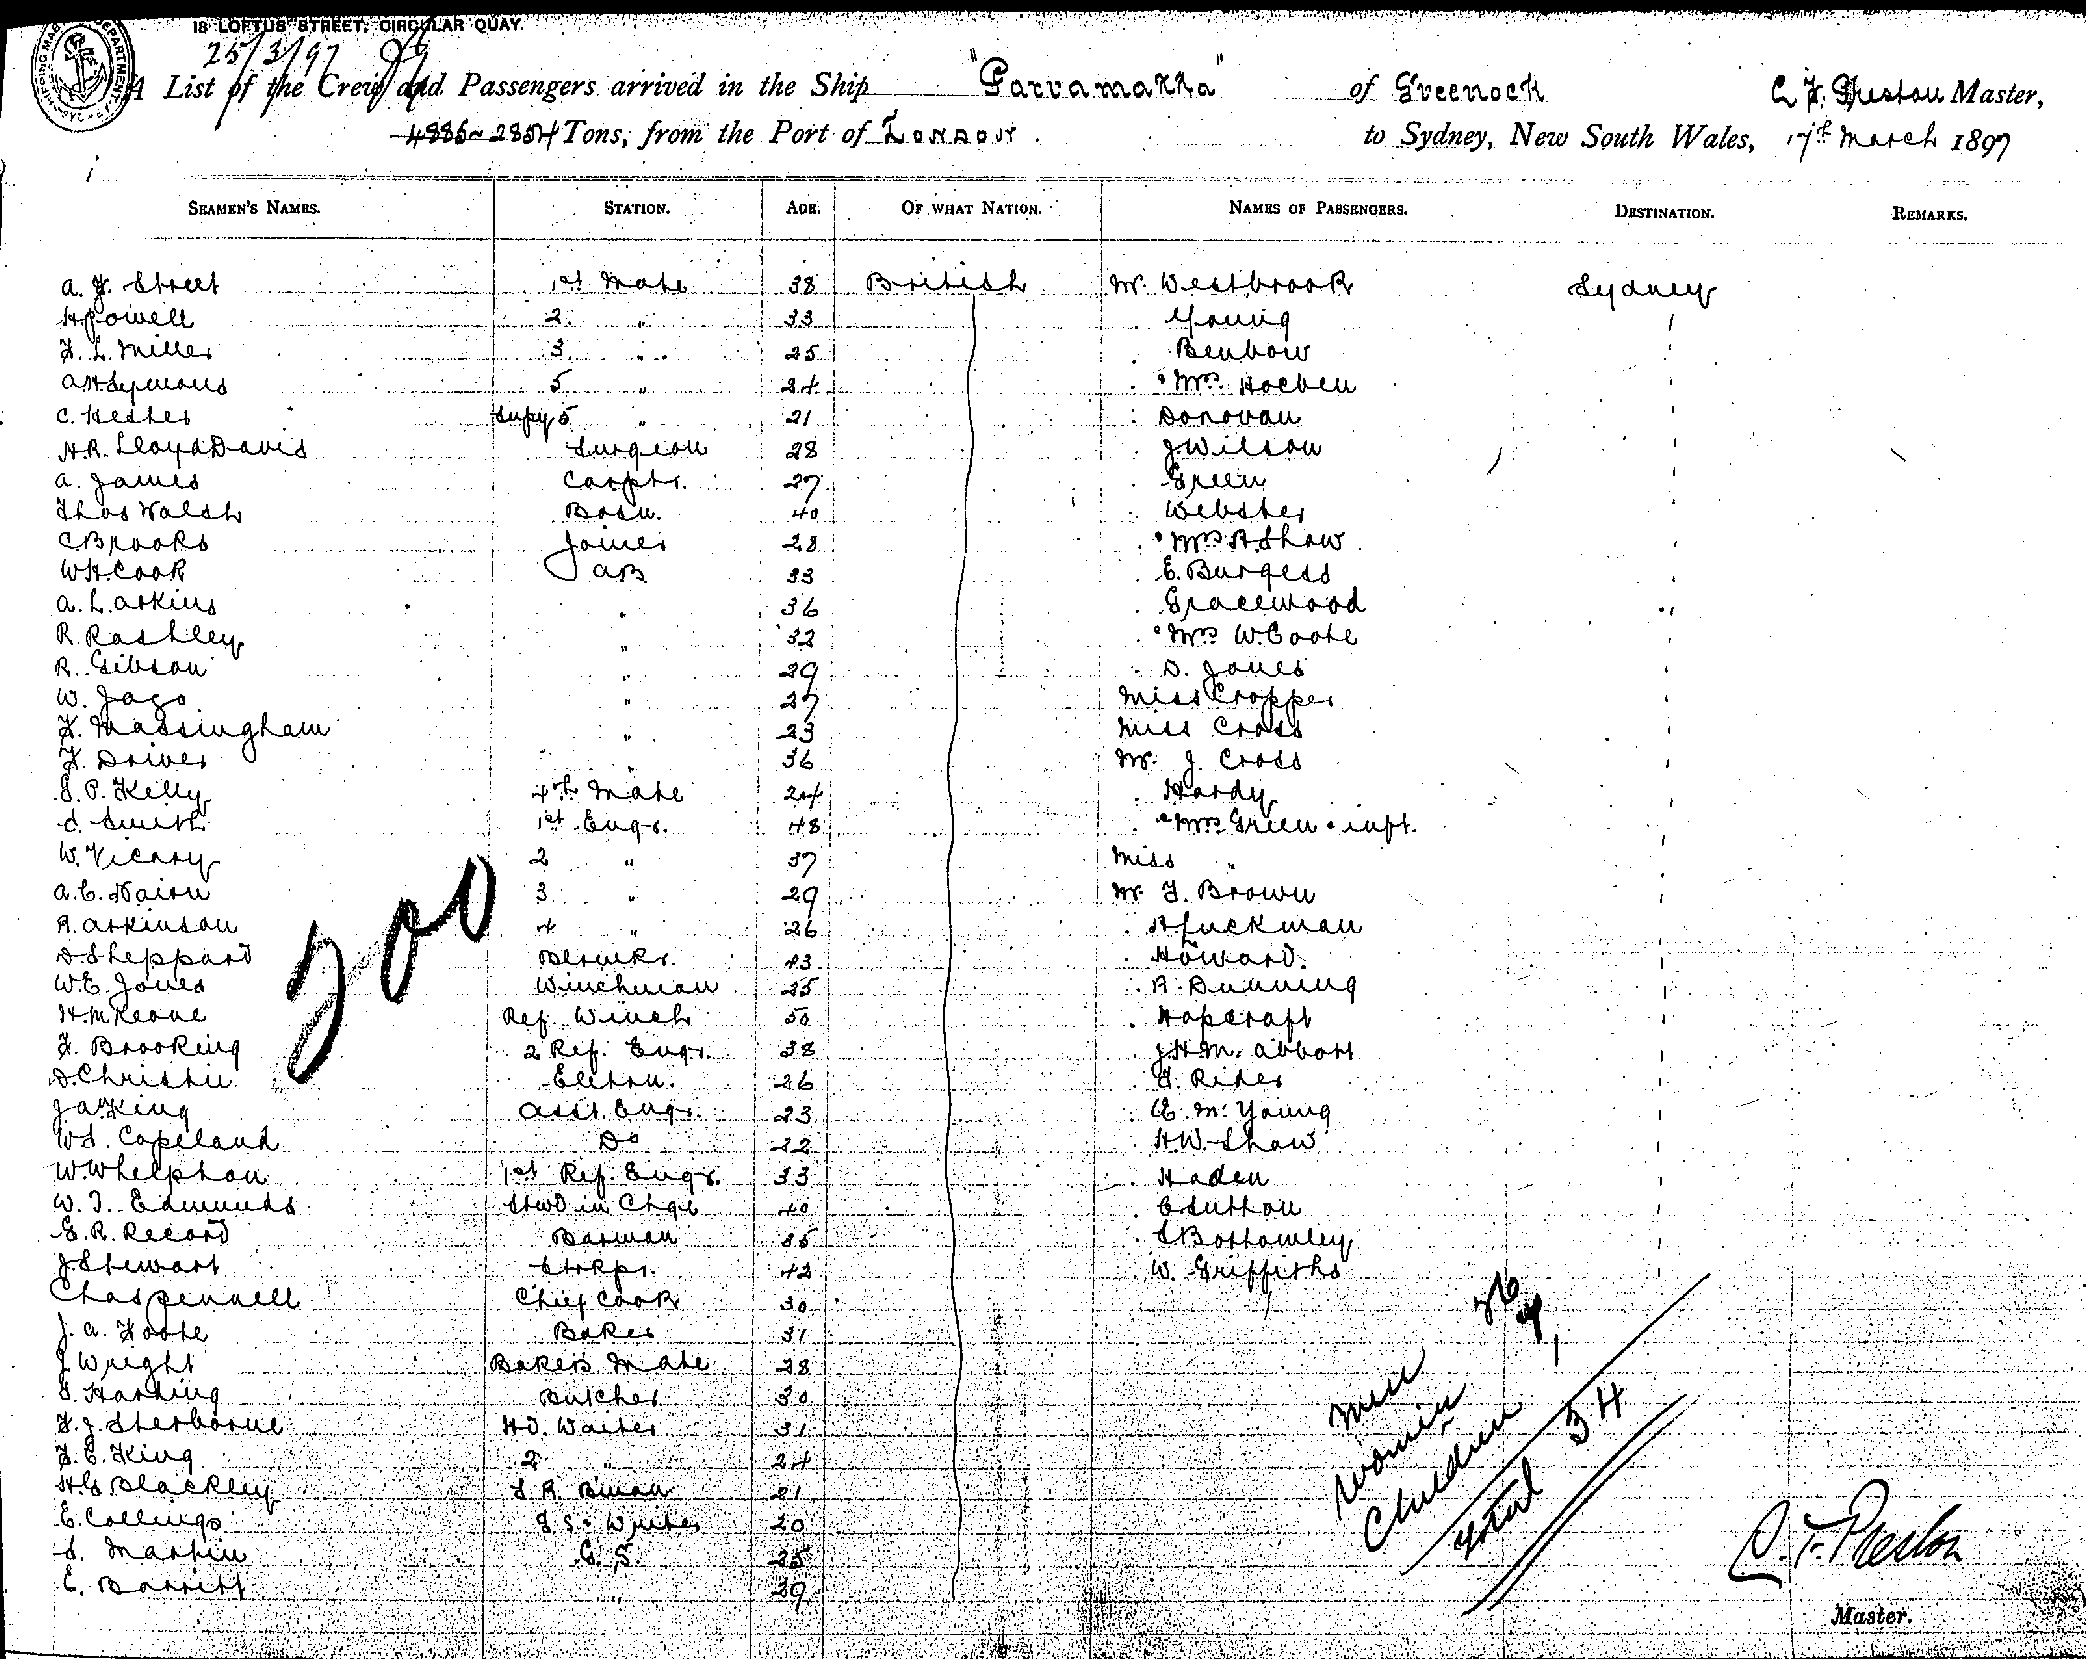 18 LOFTUS STREET, CIRCULAR QUAY.
25/3/97
A List of the Crew and Passengers arrived in the Ship "Parramatta" of Greenock C. F. Preston Master,
4886~2854 Tons, from the Port of London to Sydney, New South Wales, 17th March 1897
SEAMEN'S NAMES. STATION. AGE. OF WHAT NATION. NAMES OF PASSENGERS. DESTINATION. REMARKS.
A. F. Street 1st Mate 38 British Mr. Westbrook Sydney
H Powell 2 " 33 Young
F. L. Miller 3 " 25 Benbow
A H Symons 5 " 24 Mrs. Hoeben
C. Hester Supy 5 " 21 Donovan
H. R. Lloyd Davis Surgeon 28 J Wilson
A. James Carptr. 27 Green
Thos Walsh Bosn. 40 Webster
C Brooks Joiner 28 Mrs A Shaw
W H Cook AB 33 E. Burgess
A. Larkins " 36 Gracewood
R. Rashley " 32 Mrs W. Coote
R. Gibson " 29 D. Jones
W. Jago " 27 Miss Cropper
F. Massingham " 23 Miss Cross
F. Driver " 36 Mr. J. Cross
S. P. Kelly 4th Mate 24 Hardy
S. Smith 1st Engr. 48 Mrs Green inft.
W. Vicary 2 " 37 Miss "
A. C. Nairn 3 " 29 Mr. F. Brown
R. Atkinson 4 " 26 A Luckman
D Sheppard 43 Howard.
W. E. Jones Winchman 25 R. Dunning
H. McKeone Ref Winch 50 Hopcraft
F. Brooking 2 Ref. Engr. 38 J H M. Abbott
D. Christie Elctrn. 26 F. Rider
J A King Asst. Engr. 23 E. M. Young
W S. Copeland Do 22 H. W. Shaw
W. Whelpton 1st Ref. Engr. 33 Haden
W. T. Edmunds Stwd in Chge 40 C Sutton
E. R. Record Barman 35 S Bottomley
J Stewart Strkpr. 42 W. Griffiths
Chas Pennell Chief Cook 30
J. A. Foote Baker 31
J Wright Bakers Mate 28
S. Harding Butcher 30
F. J. Sherborne Hd. Waiter 31
F. C. King 2 " 24
H G Blackley S R Bman 21
E. Collings 20
S. Martin G. S. 25
E. Barritt " 39
200
Men 26
Women 7
Children 1
Total 34
C. F. Preston
Master.